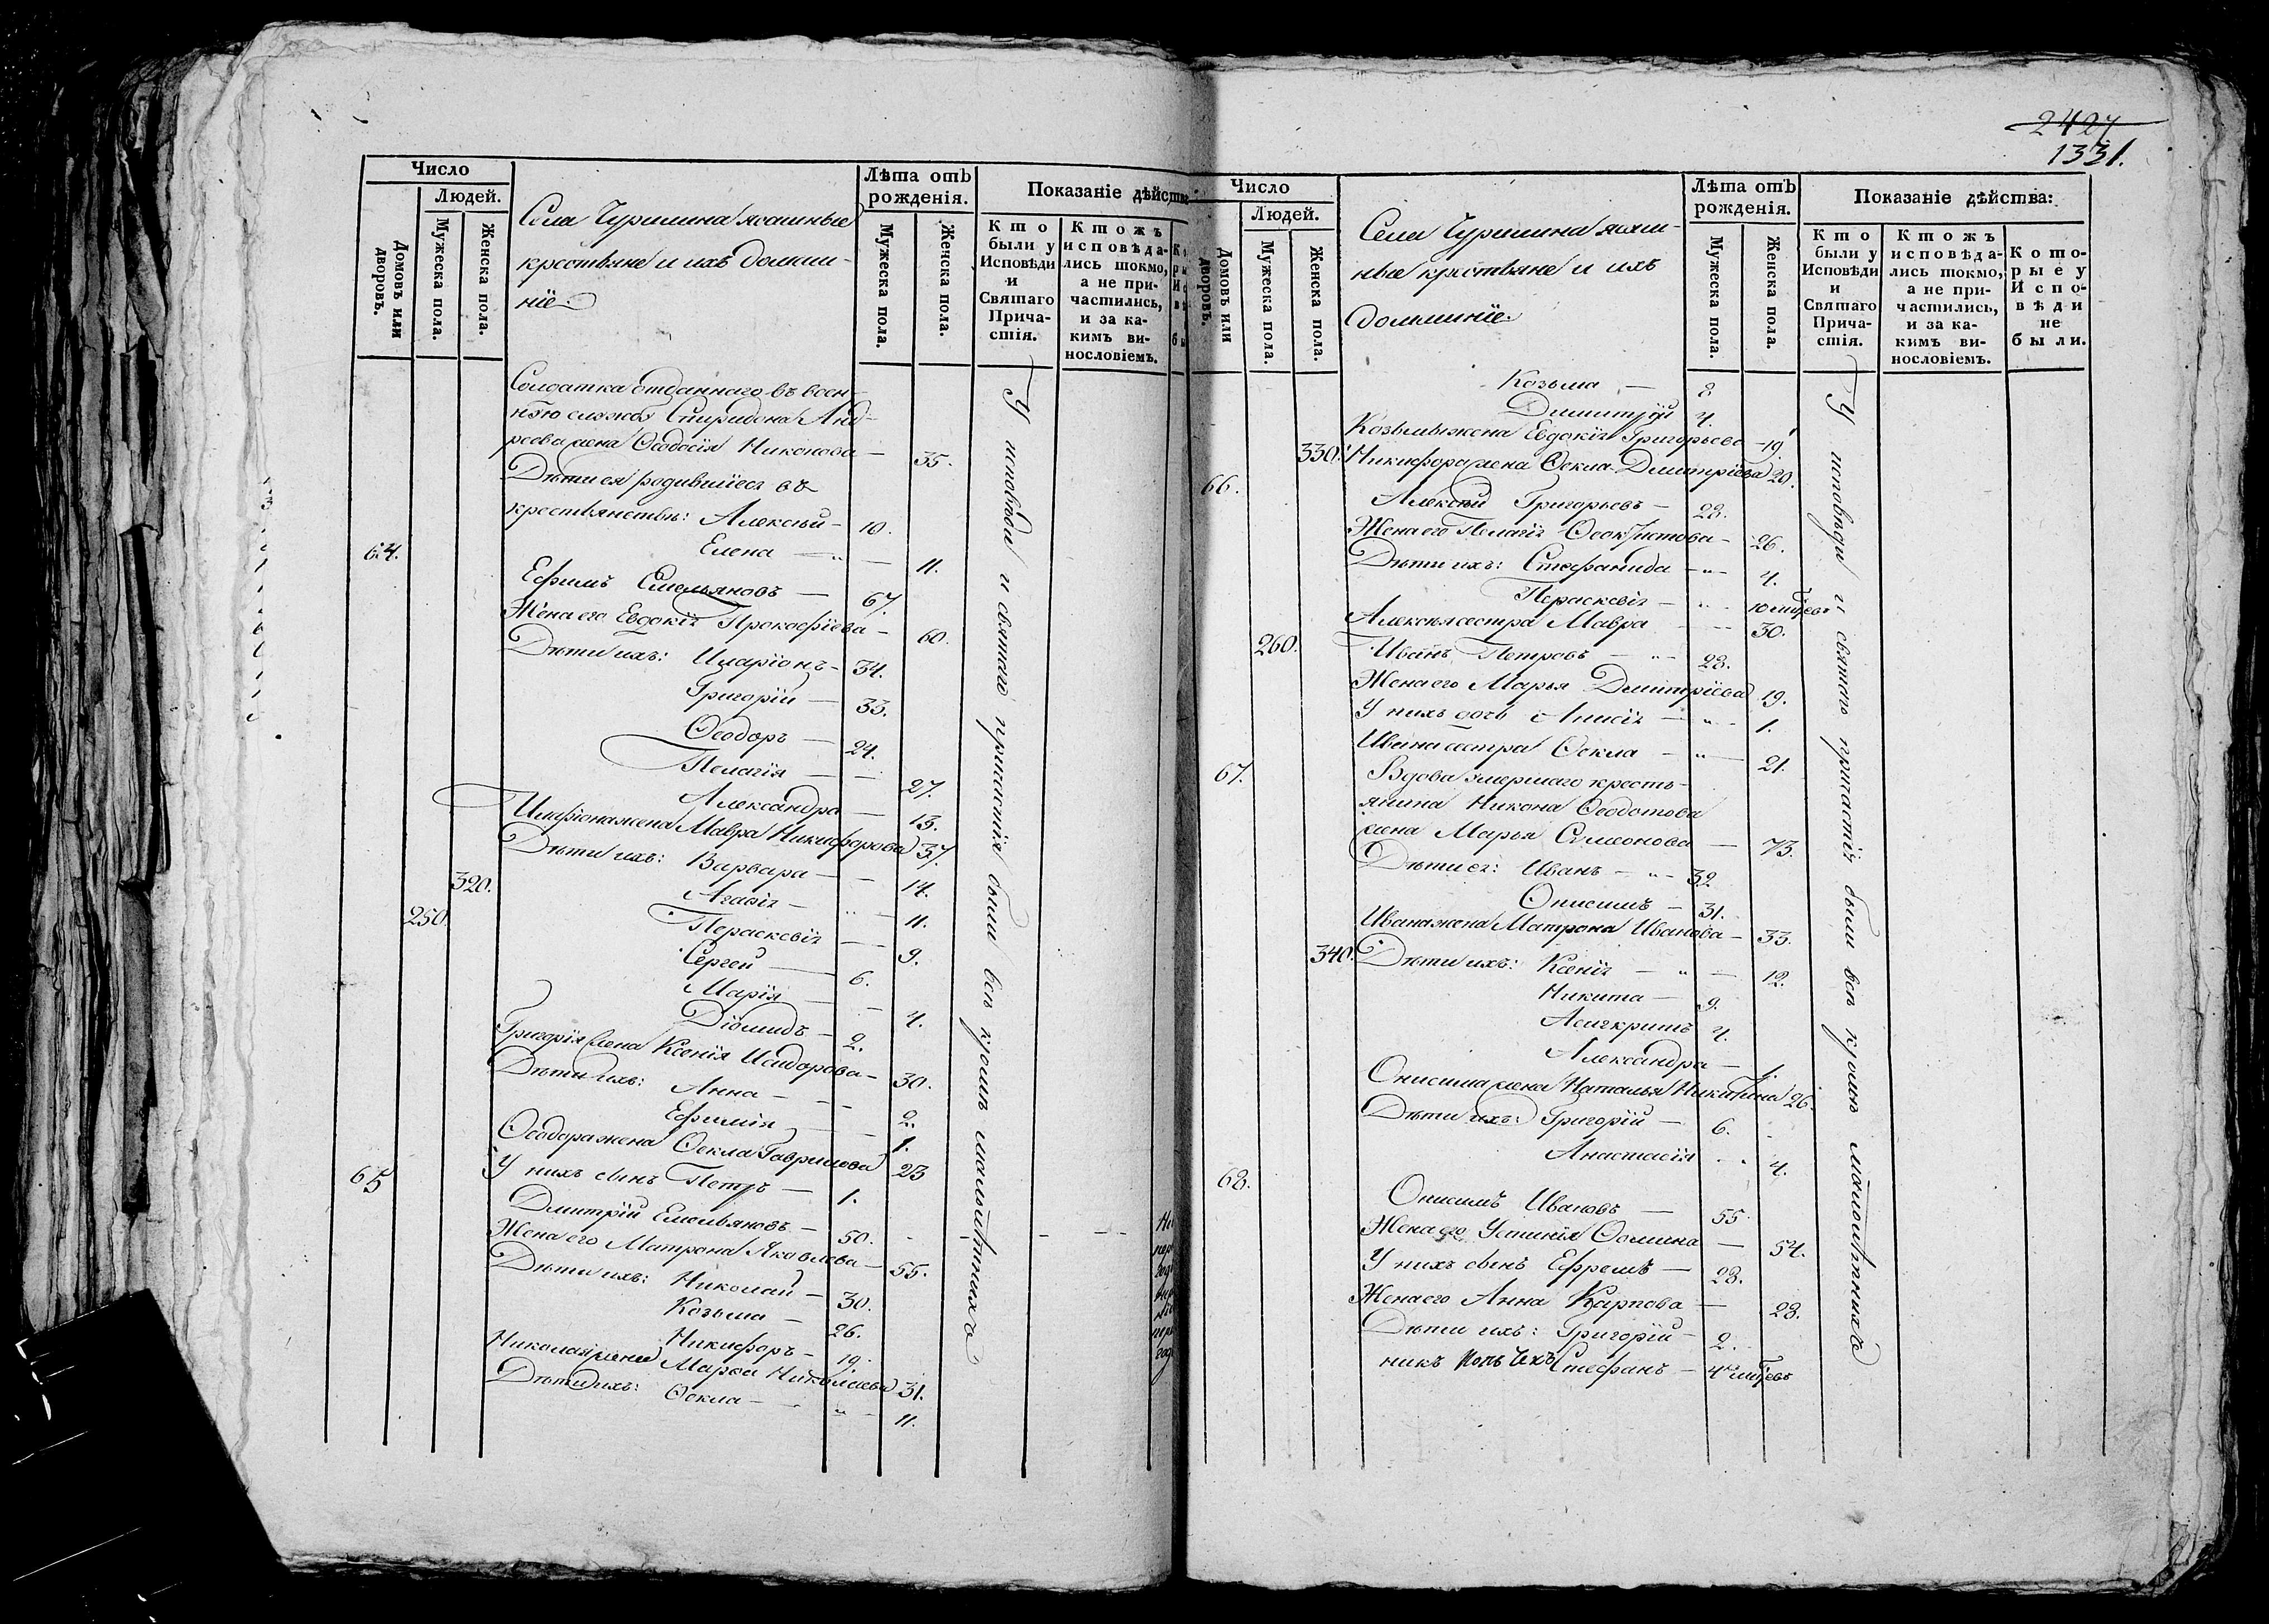 2427
1331.
Число
Людей.
Домовъ или дворовъ.
Мужеска пола.
Женска пола.
Села Чуршина ясашные
крестьяне и ихъ домаш-
ніе.
Лѣта отъ рожденія.
Мужеска пола.
Женска пола.
Показаніе дѣйства
Кто были у Исповѣди и Святаго Причастія.
Ктожъ исповѣдались токмо, а не причастились, и за какимъ винословіемъ.
Солдатка отданнаго въ воен-
ную службу Спиридона Анд-
реева жена Ѳеодосія Никонова — 35.
Дѣти ея родившіеся въ
крестьянствѣ: Алексѣй — 10.
Елена — 11.
64. Ефимъ Емельяновъ — 67.
Жена его Евдокія Прокофіева — 60.
Дѣти ихъ: Иларіонъ — 34.
Григорій — 33.
Ѳеодоръ — 24.
Пелагія — 27.
Александра — 13.
Иларіона жена Мавра Никифорова 37.
Дѣти ихъ: Варвара — 14.
320. Агафія — 11.
250. Параскевія — 9.
Сергей — 6.
Марія — 4.
Діомидъ — 2.
Григорія жена Ксенія Исидорова — 30.
Дѣти ихъ: Анна — 2.
Ефимія — 1.
Ѳеодора жена Ѳекла Гаврилова 23
У нихъ сынъ Петръ — 1.
65 Дмитрій Емельяновъ — 50.
Жена его Матрона Яковлева — 55.
Дѣти ихъ: Николай — 30.
Козьма — 26.
Никифоръ — 19.
Николая жена Марѳа Николаева 31.
Дѣти ихъ: Ѳекла — 11.
У исповѣди и святаго причастія были всѣ кромѣ малолѣтнихъ
Число
Людей.
Домовъ или дворовъ.
Мужеска пола.
Женска пола.
Села Чуршина ясаш-
ные крестьяне и ихъ
домашніе.
Лѣта отъ рожденія.
Мужеска пола.
Женска пола.
Показаніе дѣйства:
Кто были у Исповѣди и Святаго Причастія.
Ктожъ исповѣдались токмо, а не причастились, и за какимъ винословіемъ.
Которые у Исповѣди не были.
Козьма — 8
Димитрій 4.
Козьмы жена Евдокія Григорьева — 19.
330. Никифора жена Ѳекла Дмитріева 20.
66. Алексѣй Григорьевъ — 28.
Жена его Пелагія Ѳеоктистова — 26.
Дѣти ихъ: Стефанида — 4.
Параскевія — 10 мцевъ
Алексѣя сестра Мавра — 30.
260. Иванъ Петровъ — 28.
Жена его Марья Дмитріева 19.
У нихъ дочь Анисія — 1.
Ивана сестра Ѳекла — 21.
67. Вдова умершаго кресть-
янина Никона Ѳеодотова
жена Марья Симеонова — 73.
Дѣти ея: Иванъ — 32
Онисимъ — 31.
Ивана жена Матрона Иванова — 33.
340. Дѣти ихъ: Ксенія — 12.
Никита — 9.
Асигкритъ 4.
Александра — 1.
Онисима жена Наталья Никитина 26.
Дѣти ихъ: Григорій — 6.
Анастасія 4.
68. Онисимъ Ивановъ — 55
Жена его Устинія Ѳомина — 54.
У нихъ сынъ Ефремъ — 28.
Жена его Анна Карпова — 28.
Дѣти ихъ: Григорій — 2.
никъ Стефанъ — 4 мцевъ
У исповѣди и святаго причастія были всѣ кромѣ малолѣтнихъ